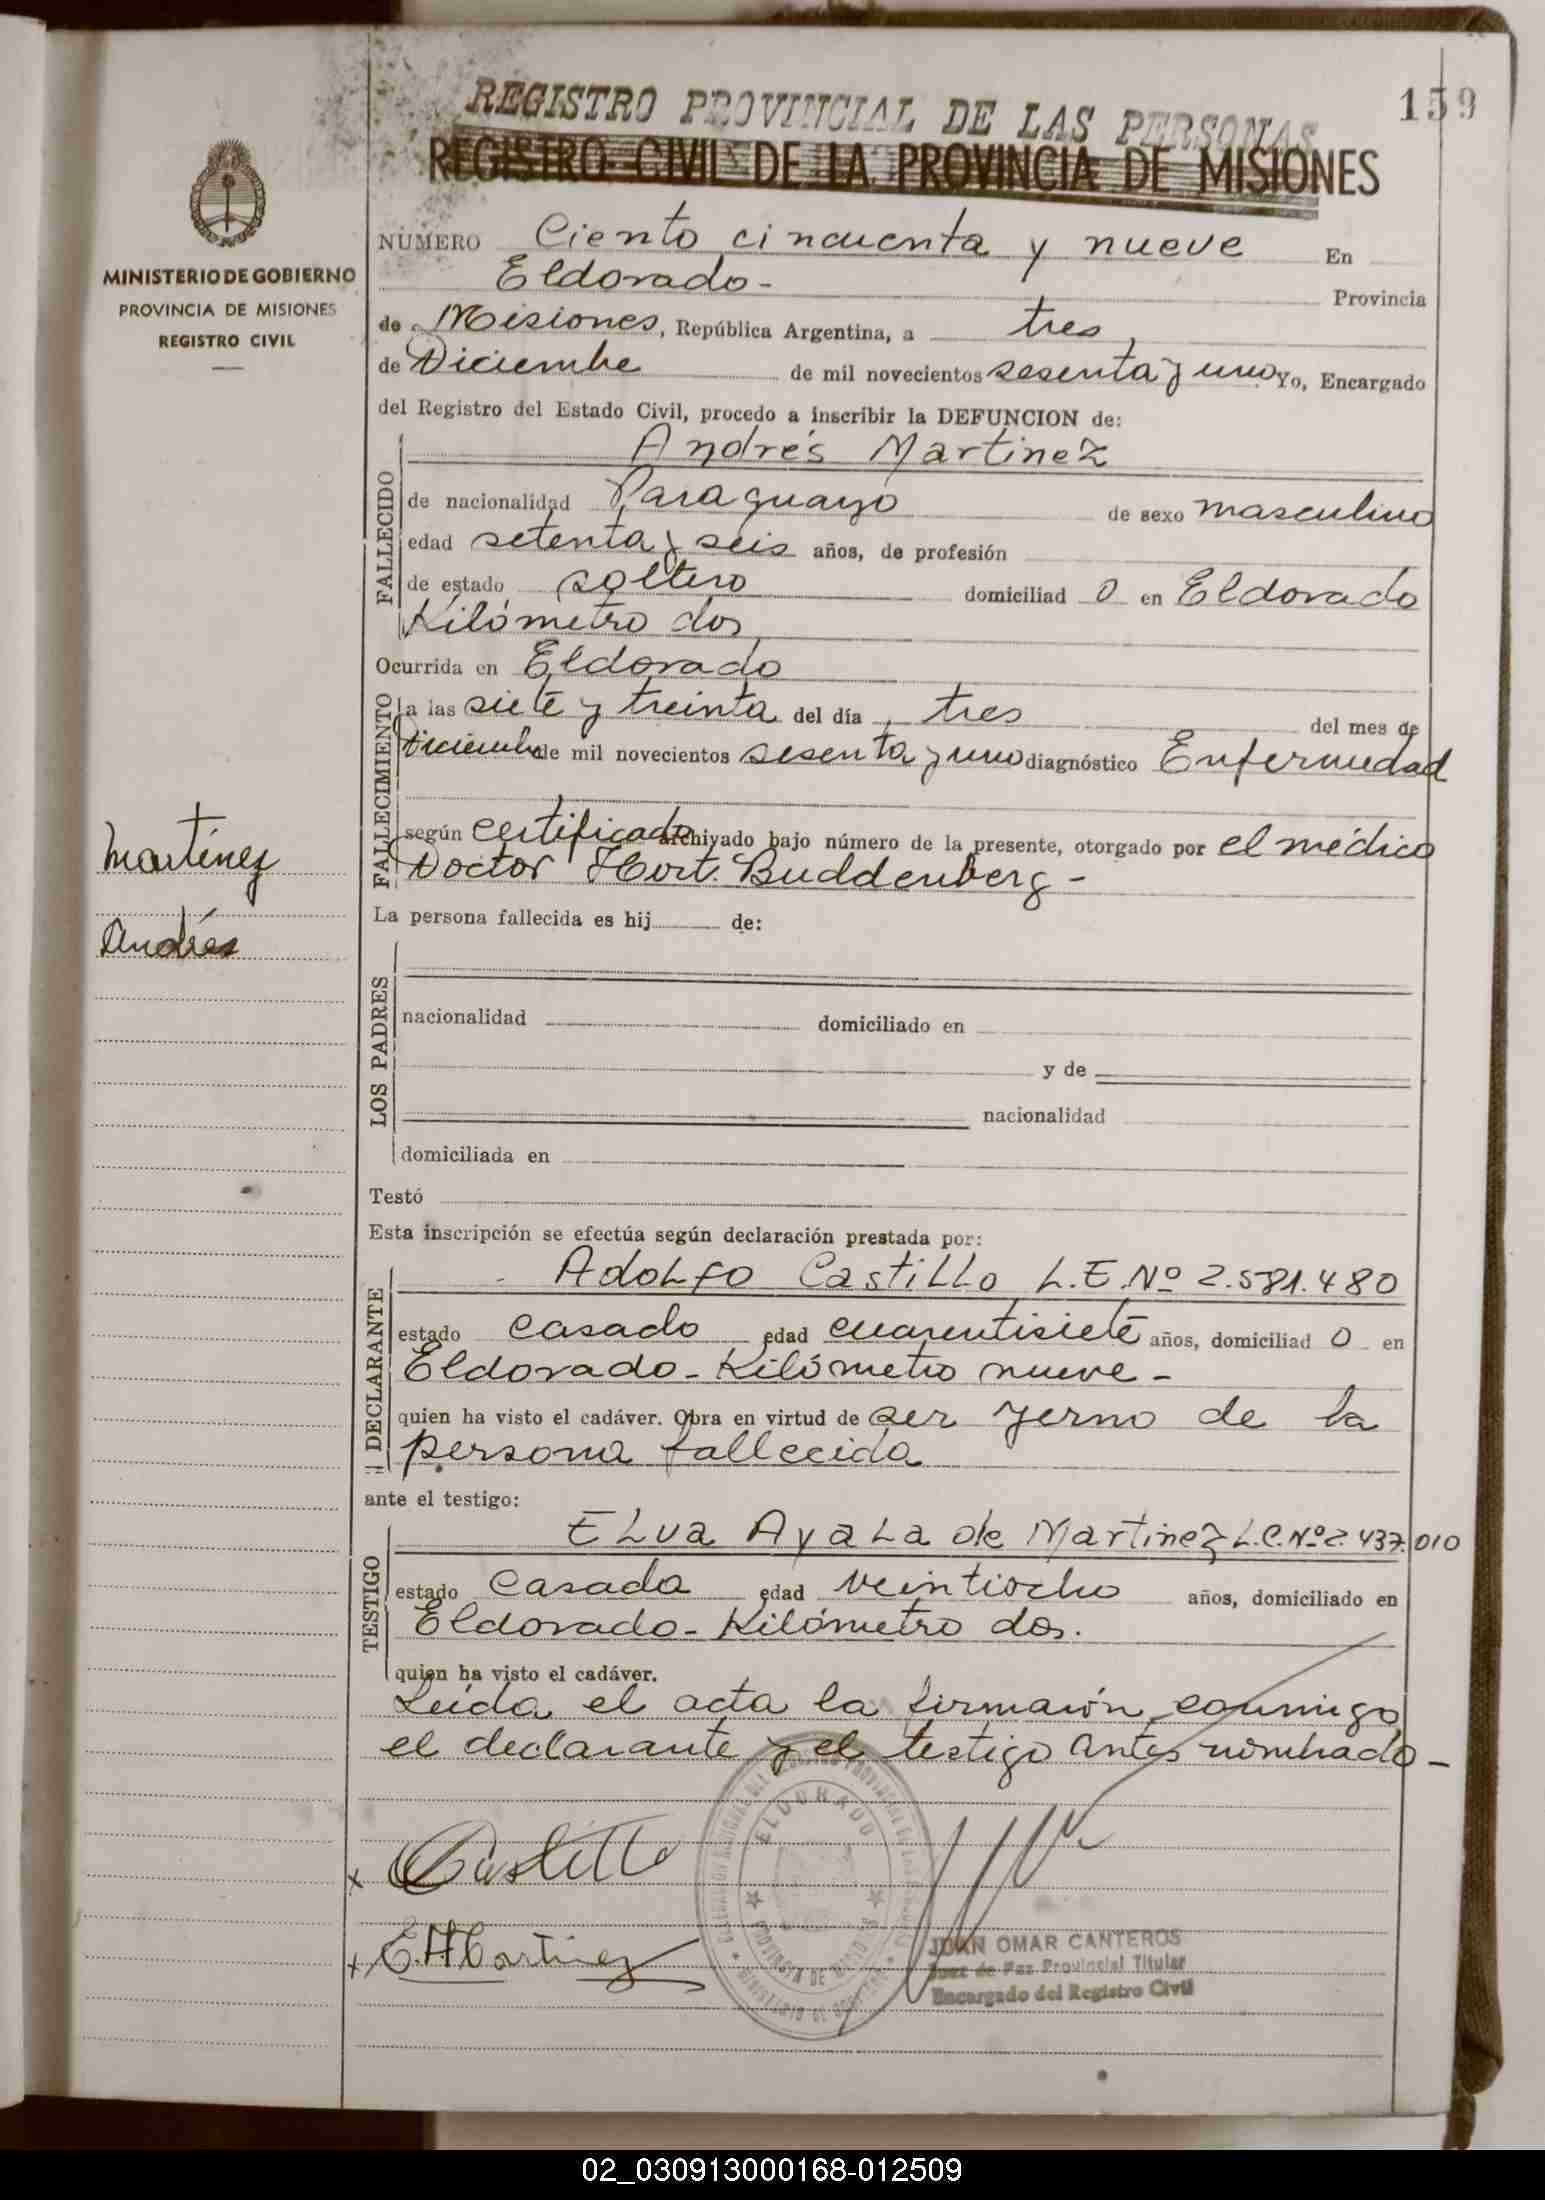 159
REGISTRO PROVINCIAL DE LAS PERSONAS
REGISTRO CIVIL DE LA PROVINCIA DE MISIONES
MINISTERIO DE GOBIERNO
PROVINCIA DE MISIONES
REGISTRO CIVIL
NÚMERO Ciento cincuenta y nueve En
Eldorado - Provincia
de Misiones, República Argentina, a tres
de Diciembre de mil novecientos sesenta y uno Yo, Encargado
del Registro del Estado Civil, procedo a inscribir la DEFUNCION de:
FALLECIDO
Andrés Martinez
de nacionalidad Paraguayo de sexo masculino
edad setenta y seis años, de profesión
de estado soltero domiciliad o en Eldorado
Kilómetro dos
Ocurrida en Eldorado
FALLECIMIENTO
a las siete y treinta del día tres del mes de
Diciembre de mil novecientos sesenta y uno diagnóstico Enfermedad
según certificado archivado bajo número de la presente, otorgado por el médico
Doctor Hort. Buddenberg -
Martínez
Andrés
La persona fallecida es hij de:
LOS PADRES
nacionalidad domiciliado en
y de
nacionalidad
domiciliada en
Testó
Esta inscripción se efectúa según declaración prestada por:
DECLARANTE
Adolfo Castillo L.E. Nº 2.581.480
estado casado edad cuarentisiete años, domiciliad o en
Eldorado - Kilómetro nueve -
quien ha visto el cadáver. Obra en virtud de ser yerno de la
persona fallecida
ante el testigo:
TESTIGO
Elva Ayala de Martinez L.C. Nº 2.437.010
estado casada edad veintiocho años, domiciliado en
Eldorado - Kilómetro dos.
quien ha visto el cadáver.
Leída el acta la firmarón conmigo
el declarante y el testigo antes nombrado -
x Castillo
x E. A. Martinez
ELDORADO
PROVINCIA DE MISIONES
JUAN OMAR CANTEROS
Juez de Paz Provincial Titular
Encargado del Registro Civil
02_030913000168-012509